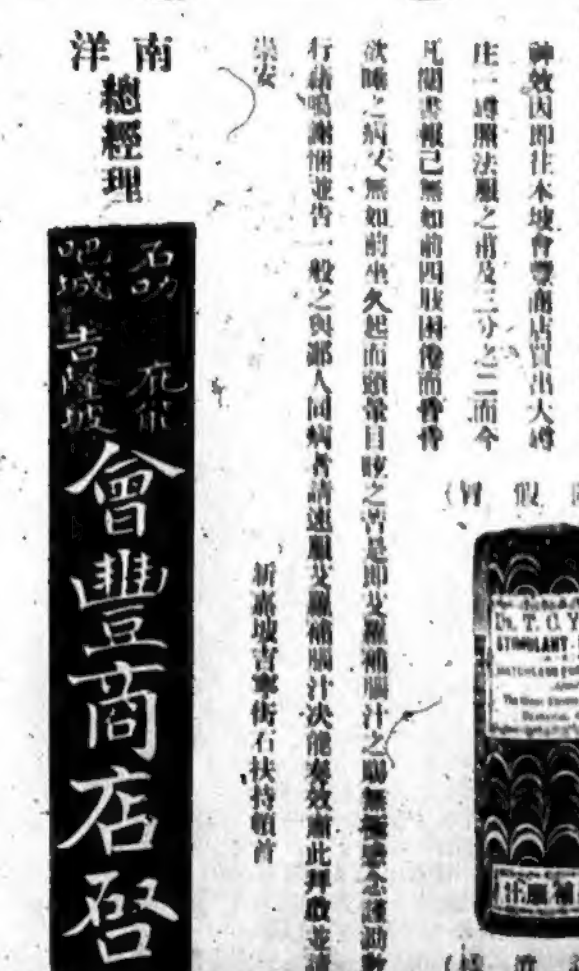 神效因即往本坡會豐商店買出大罇
庄一罇照法服之甫及三分之二而今
凡閱書報已無如前四肢困倦而昏昏
欲睡之病又無如前坐久起而頭暈目眩之苦是即艾羅補腦汁之賜無
行藉鳴謝悃並告一般之與鄙人同病者請速服艾羅補腦汁決能奏效肅此拜啟並請
崇安
新嘉坡吉寧街石扶持頓首
南洋
總經理
石叻
吧城 吉隆坡
會豐商店啓
假冒
DR. T. C. Y
STIMULANT
補腦汁